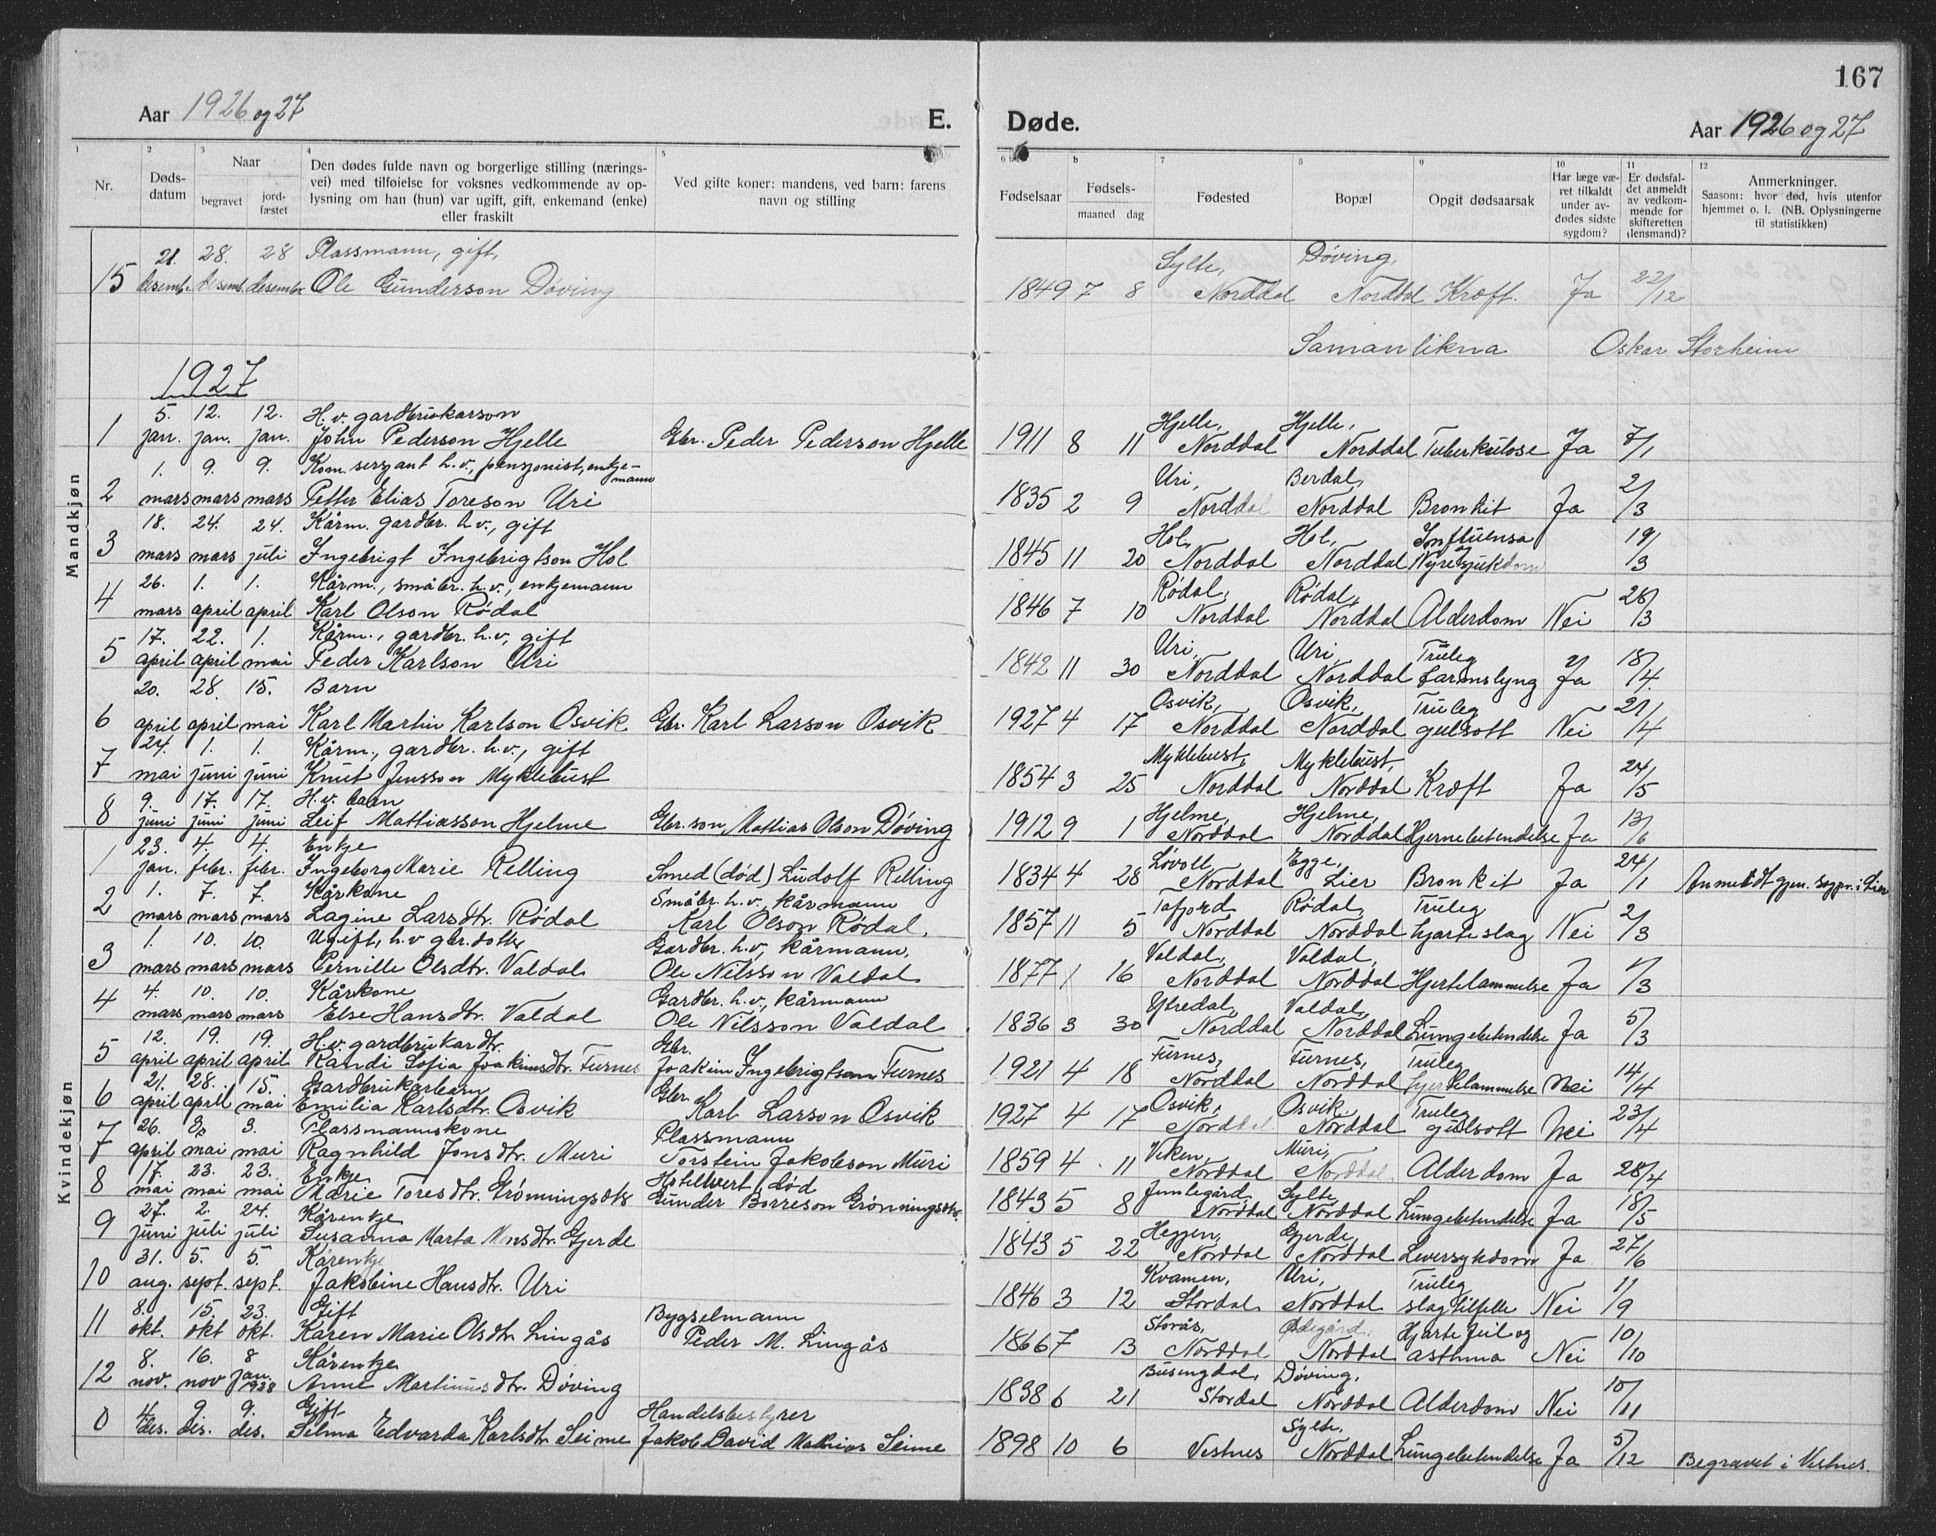 167
Aar 1926 og 27
E.
Døde.
Aar 1926 og 27
1 2 3 4 5 6 b 7 8 9 10 11 12
Nr.
Døds-
datum
Naar
begravet
jord-
fæstet
Den dødes fulde navn og borgerlige stilling (nærings-
vei) med tilføielse for voksnes vedkommende av op-
lysning om han (hun) var ugift, gift, enkemand (enke)
eller fraskilt
Ved gifte koner: mandens, ved barn: farens
navn og stilling
Fødselsaar
Fødsels-
maaned dag
Fødested
Bopæl
Opgit dødsaarsak
Har læge væ-
ret tilkaldt
under av-
dødes sidste
sygdom?
Er dødsfal-
det anmeldt
av vedkom-
mende for
skifteretten
(lensmand)?
Anmerkninger.
Saasom: hvor død, hvis utenfor
hjemmet o. l. (NB. Oplysningerne
til statistikken)
21. 28. 28 Plassmann, gift, Sylte, Døving,
15 desemb. desemb. desember Ole Gunderson Døving 1849 7 8 Norddal Norddal Kræft. Ja 22/12
Samanlikna Oskar Storheim
1927
Mandkjøn
5. 12. 12. H.v. gardbrukarson Hjelle, Hjelle,
1 jan. jan. jan. John Pederson Hjelle Gbr. Peder Pederson Hjelle 1911 8 11 Norddal Norddal Tuberkulose Ja 7/1
1. 9. 9. Kom. sersjant h.v., pensjonist, enkje- Uri, Berdal,
mann
2 mars mars mars Petter Elias Toreson Uri 1835 2 9 Norddal Norddal Bronkit Ja 2/3
18. 24. 24. Kårm. gardbr. h.v., gift Hol, Hol, Influensa
3 mars mars juli Ingebrigt Ingebrigtson Hol 1845 11 20 Norddal Norddal Nyresjukdom 19/3
26. 1. 1. Kårm., småbr. h.v., enkjemann Rødal, Rødal,
4 mars april april Karl Olson Rødal 1846 7 10 Norddal Norddal Alderdom Nei 28/3
17. 22. 1. Kårm., gardbr. h.v., gift Uri, Uri, Truleg
5 april april mai Peder Karlson Uri 1842 11 30 Norddal Norddal tarmslyng Ja 18/4
20. 28. 15. Barn Osvik, Osvik, Truleg
6 april april mai Karl Martin Karlson Osvik Gbr. Karl Larson Osvik 1927 4 17 Norddal Norddal gulsott Nei 21/4
24. 1. 1. Kårm., gardbr. h.v., gift Myklebust, Myklebust,
7 mai juni juni Knut Jensson Myklebust 1854 3 25 Norddal Norddal Kræft Ja 24/5
9. 17. 17. H.v. barn Hjelme, Hjelme,
8 juni juni juni Leif Mattiasson Hjelme Gbr.son, Mattias Olson Døving 1912 9 1 Norddal Norddal Hjernebetendelse Ja 13/6
Kvindekjøn
23. 4. 4. Enkje Løvoll, Egge,
1 jan. febr. febr. Ingeborg Marie Relling Smed (død) Ludolf Relling 1834 4 28 Norddal Lier Bronkit Ja 24/1 Anmeldt gjen. sogpr. i Lier
1. 7. 7. Kårkone Småbr. h.v., kårmann Tafjord Rødal, Truleg
2 mars mars mars Lagine Larsdtr. Rødal Karl Olson Rødal. 1857 11 5 Norddal Norddal hjarteslag Nei 2/3
1. 10. 10. Ugift, h.v. gbr.dotter Gardbr. h.v., kårmann, Valdal, Valdal,
3 mars mars mars Pernille Olsdtr. Valdal Ole Nilsson Valdal 1877 1 16 Norddal Norddal Hjertelammelse Ja 1/3
4. 10. 10. Kårkone Gardbr. h.v., kårmann Ytredal, Valdal,
4 mars mars mars Else Hansdtr. Valdal Ole Nilsson Valdal 1836 3 30 Norddal Norddal Lungebetendelse Ja 5/3
12. 19. 19. H.v. gardbrukardtr. Gbr. Furnes, Furnes, Truleg
5 april april april Randi Sofia Joakimsdtr. Furnes Joakim Ingebrigtson Furnes 1921 4 18 Norddal Norddal hjertelammelse Nei 14/4
21. 28. 15. Gardbrukarbarn Gbr. Osvik, Osvik, Truleg
6 april april mai Emilia Karlsdtr. Osvik Karl Larson Osvik 1927 4 17 Norddal Norddal gulsott Nei 23/4
26. 3. 3. Plassmannskone Plassmann Viken, Muri,
7 april mai mai Ragnhild Jonsdtr. Muri Torstein Jakobson Muri 1859 4 11 Norddal Norddal Alderdom Ja 28/4
17. 23. 23. Enkje Hotellvert, død Sylte
8 mai mai mai Marie Toresdtr. Grønningsæter Gunder Borreson Grønningsæter 1843 5 8 Norddal Norddal Lungebetendelse Ja 18/5
27. 2. 24. Kårenkje Heggen, Gjerde,
9 juni juli juli Susanna Marta Gjerde 1843 5 22 Norddal Norddal Leversykdom Ja 27/6
31. 5. 5. Kårenkje Kvamen, Uri, Truleg
10 aug. sept. sept. Jakobine Hansdtr. Uri 1846 3 12 Stordal Norddal slagtilfelle Nei 1/9
8. 15. 23. Gift Bygselmann Storås, Ødegård, Hjartefeil og
11 okt. okt okt. Karen Marie Olsdtr. Lingås Peder M. Lingås 1866 7 13 Norddal Norddal asthma Nei 10/10
8. 16. 8 Kårenkje Busengdal, Døving,
12 nov. nov jan. 1928 Anne Martinusdtr. Døving 1838 6 21 Stordal Norddal Alderdom Nei 10/11
4. 9. 9. Gift Handelsbestyrer Sylte,
0 des. des. Selma Edvarda Karlsdtr. Seime Jakob David Mathias Seime 1898 10 6 Vestnes Norddal Lungebetendelse Ja 5/12 Begravet i Vestnes.